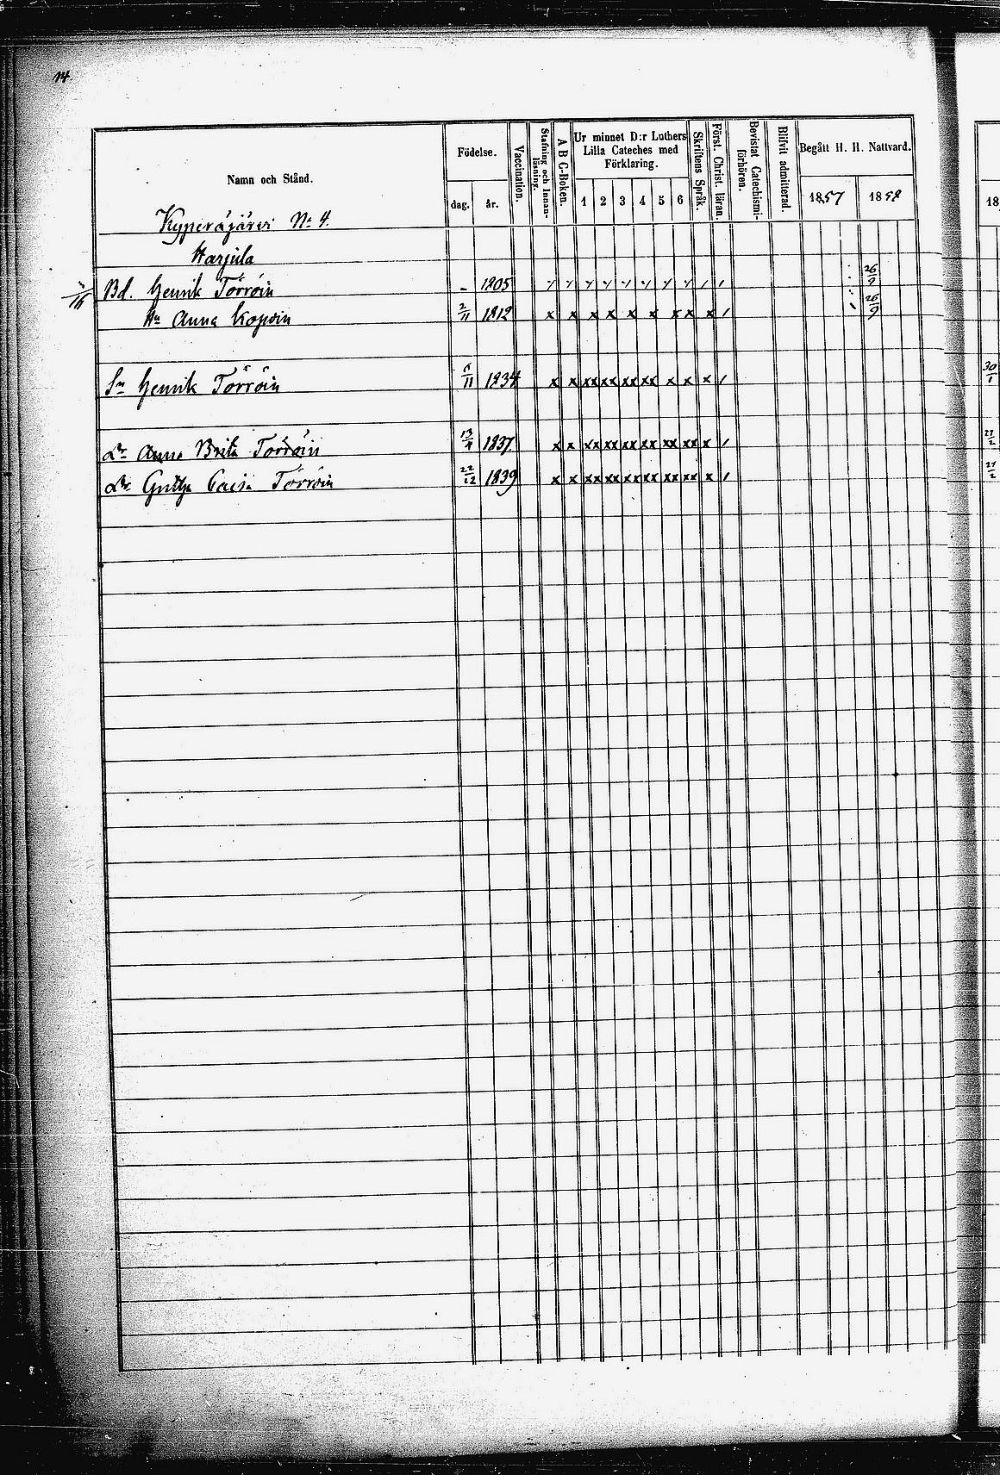 14
Namn och Stånd.
Födelse.
dag.
år.
Vaccination.
Stafning och Innan-
läsning.
A B C-Boken.
Ur minnet D:r Luthers
Lilla Cateches med
Förklaring.
1 2 3 4 5 6
Skriftens Språk.
Först. Christ. läran.
Bevistat Catechismi-
förhören.
Blifvit admitterad.
Begått H. H. Nattvard.
1857 1858
18
N:o 4.
Harjula
Bd. Henrik Törröin - 1805 26/9
Hu Anna 2/11 1812 26/9
Sn Henrik Törröin 11 1834 x x xx xx xx xx x x x / 30/1
Dr Anna Brita Törröin 1837 x x xx xx xx xx xx xx x / 21/2
Dr Caisa Törröin 22/12 1839 x x xx xx xx xx xx xx x / 21/2